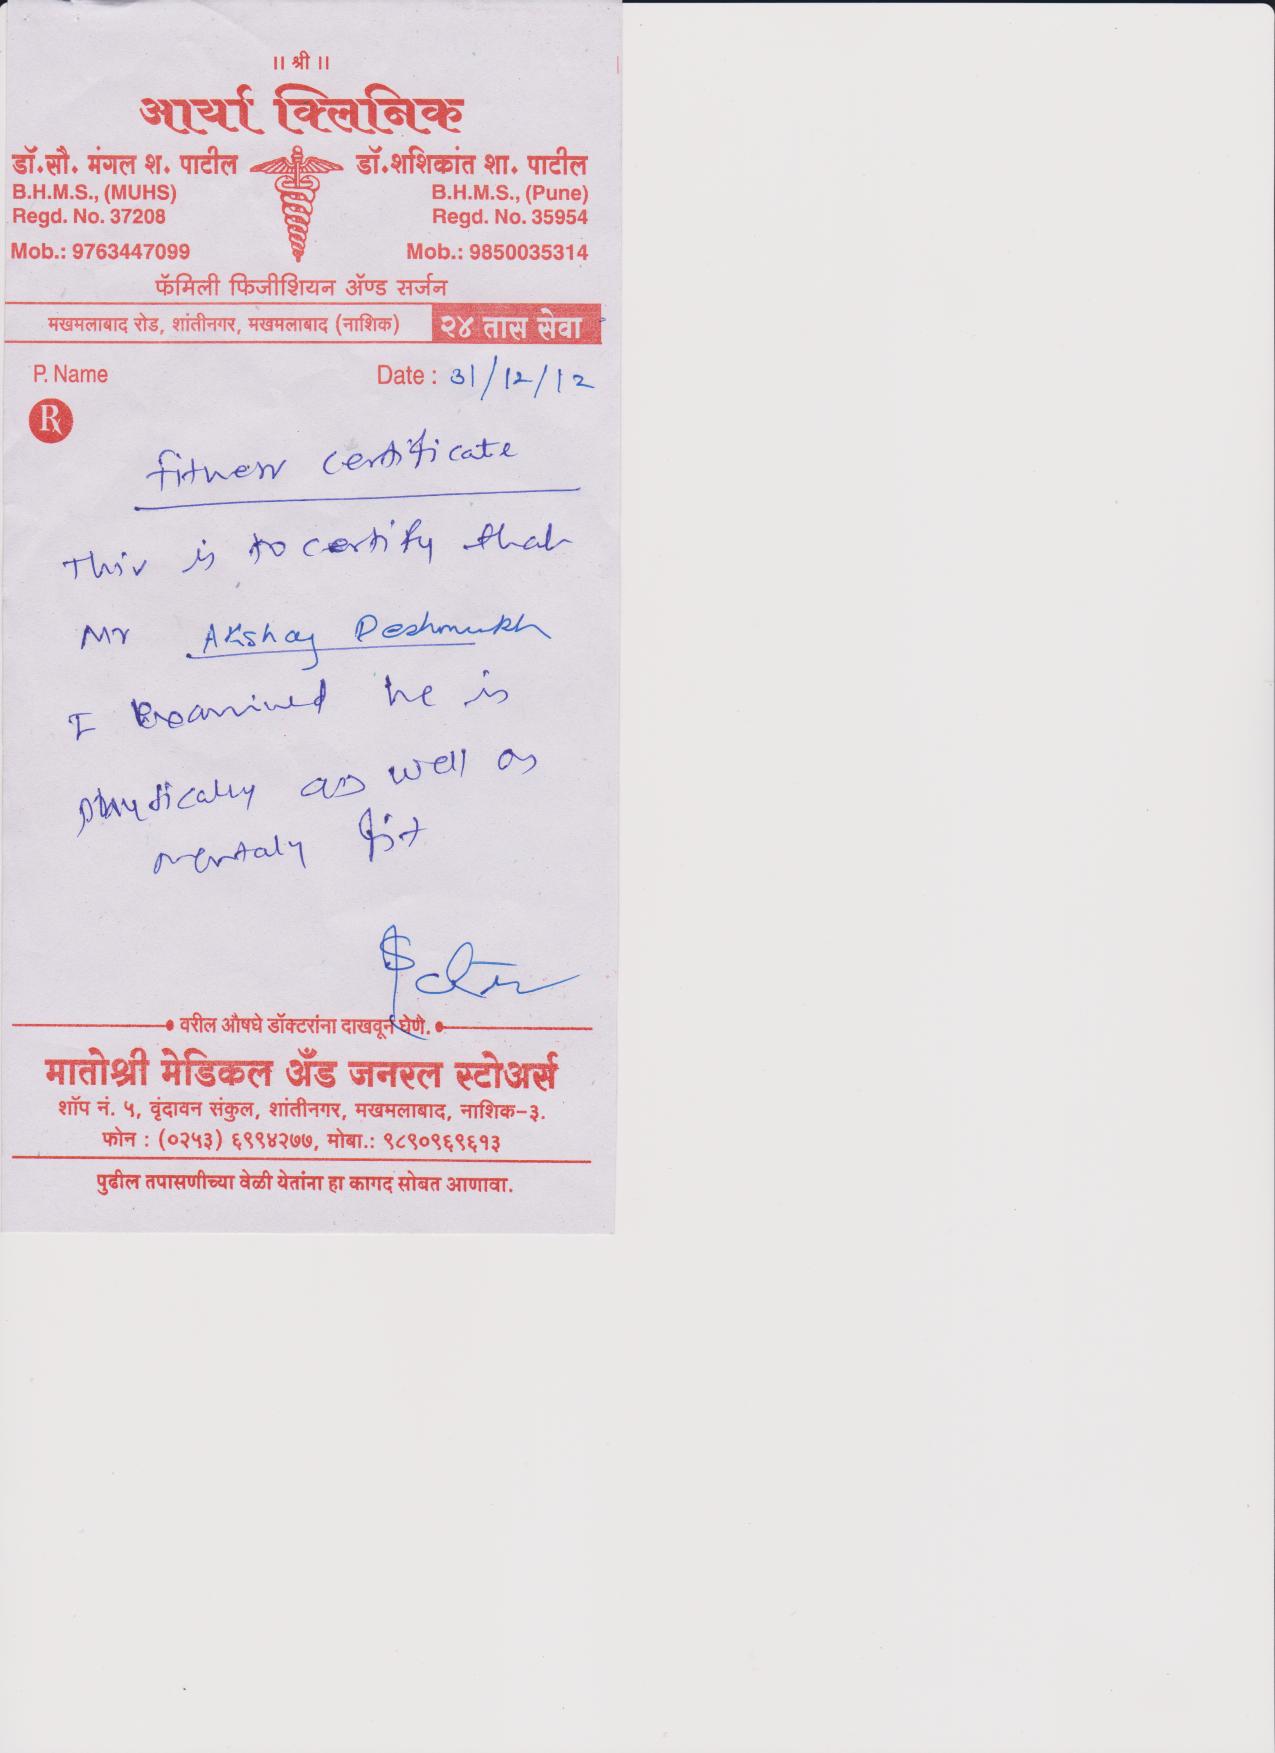 ॥ श्री ॥
आर्या क्लिनिक
डॉ.सौ. मंगल श. पाटील
B.H.M.S., (MUHS)
Regd. No. 37208
Mob.: 9763447099
डॉ.शशिकांत शा. पाटील
B.H.M.S., (Pune)
Regd. No. 35954
Mob.: 9850035314
फॅमिली फिजीशियन ॲण्ड सर्जन
मखमलाबाद रोड, शांतीनगर, मखमलाबाद (नाशिक)
२४ तास सेवा
P. Name
Date : 31/12/12
Rx
Fitness certificate
This is to certify that
Mr Akshay Deshmukh
I Examined he is
physically as well as
mentaly fit
वरील औषधे डॉक्टरांना दाखवून घेणे.
मातोश्री मेडिकल अँड जनरल स्टोअर्स
शॉप नं. ५, वृंदावन संकुल, शांतीनगर, मखमलाबाद, नाशिक-३.
फोन : (०२५३) ६९९४२७७, मोबा.: ९८९०९६९६१३
पुढील तपासणीच्या वेळी येतांना हा कागद सोबत आणावा.